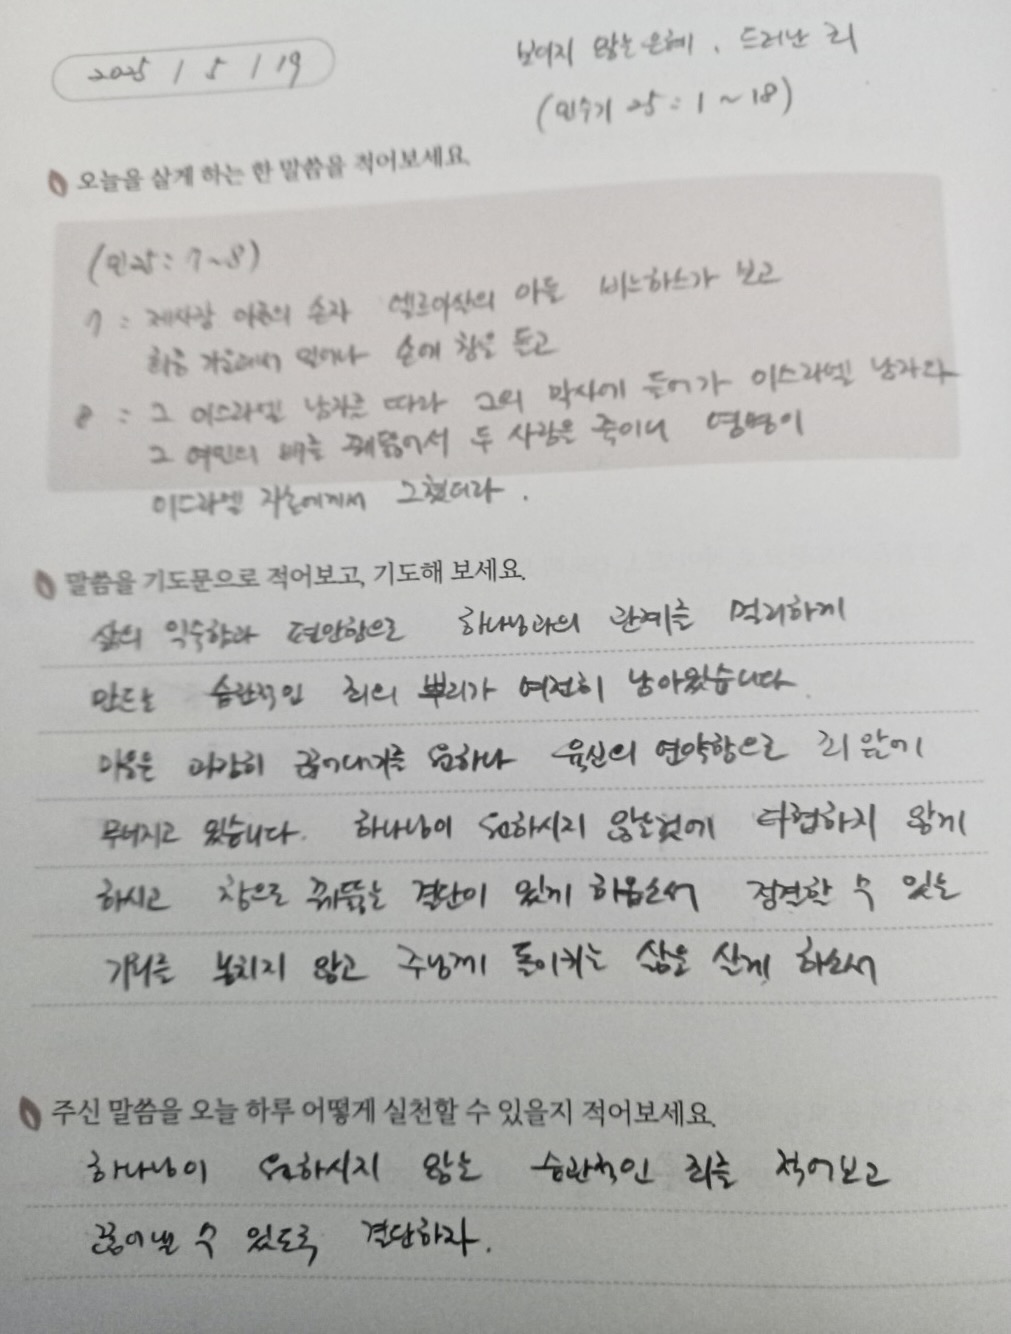 2025 / 5 / 19
보이지 않는 은혜, 드러난 죄
(민수기 25:1~18)
오늘을 살게 하는 한 말씀을 적어보세요.
(민25:7~8)
7: 제사장 아론의 손자 엘르아살의 아들 비느하스가 보고
회중 가운데서 일어나 손에 창을 들고
8: 그 이스라엘 남자를 따라 그의 막사에 들어가 이스라엘 남자와
그 여인의 배를 꿰뚫어서 두 사람을 죽이니 염병이
이스라엘 자손에게서 그쳤더라.
말씀을 기도문으로 적어보고, 기도해 보세요.
삶의 익숙함과 편안함으로 하나님과의 관계를 멀리하게
만드는 습관적인 죄의 뿌리가 여전히 남아있습니다
마음은 과감히 끊어내기를 원하나 육신의 연약함으로 죄 앞에
무너지고 있습니다. 하나님이 원하시지 않는것에 타협하지 않게
하시고 창으로 꿰뚫는 결단이 있게 하옵소서 정결할 수 있는
기회를 놓치지 않고 주님께 돌이키는 삶을 살게 하소서
주신 말씀을 오늘 하루 어떻게 실천할 수 있을지 적어보세요.
하나님이 원하시지 않는 습관적인 죄를 적어보고
끊어낼 수 있도록 결단하자.